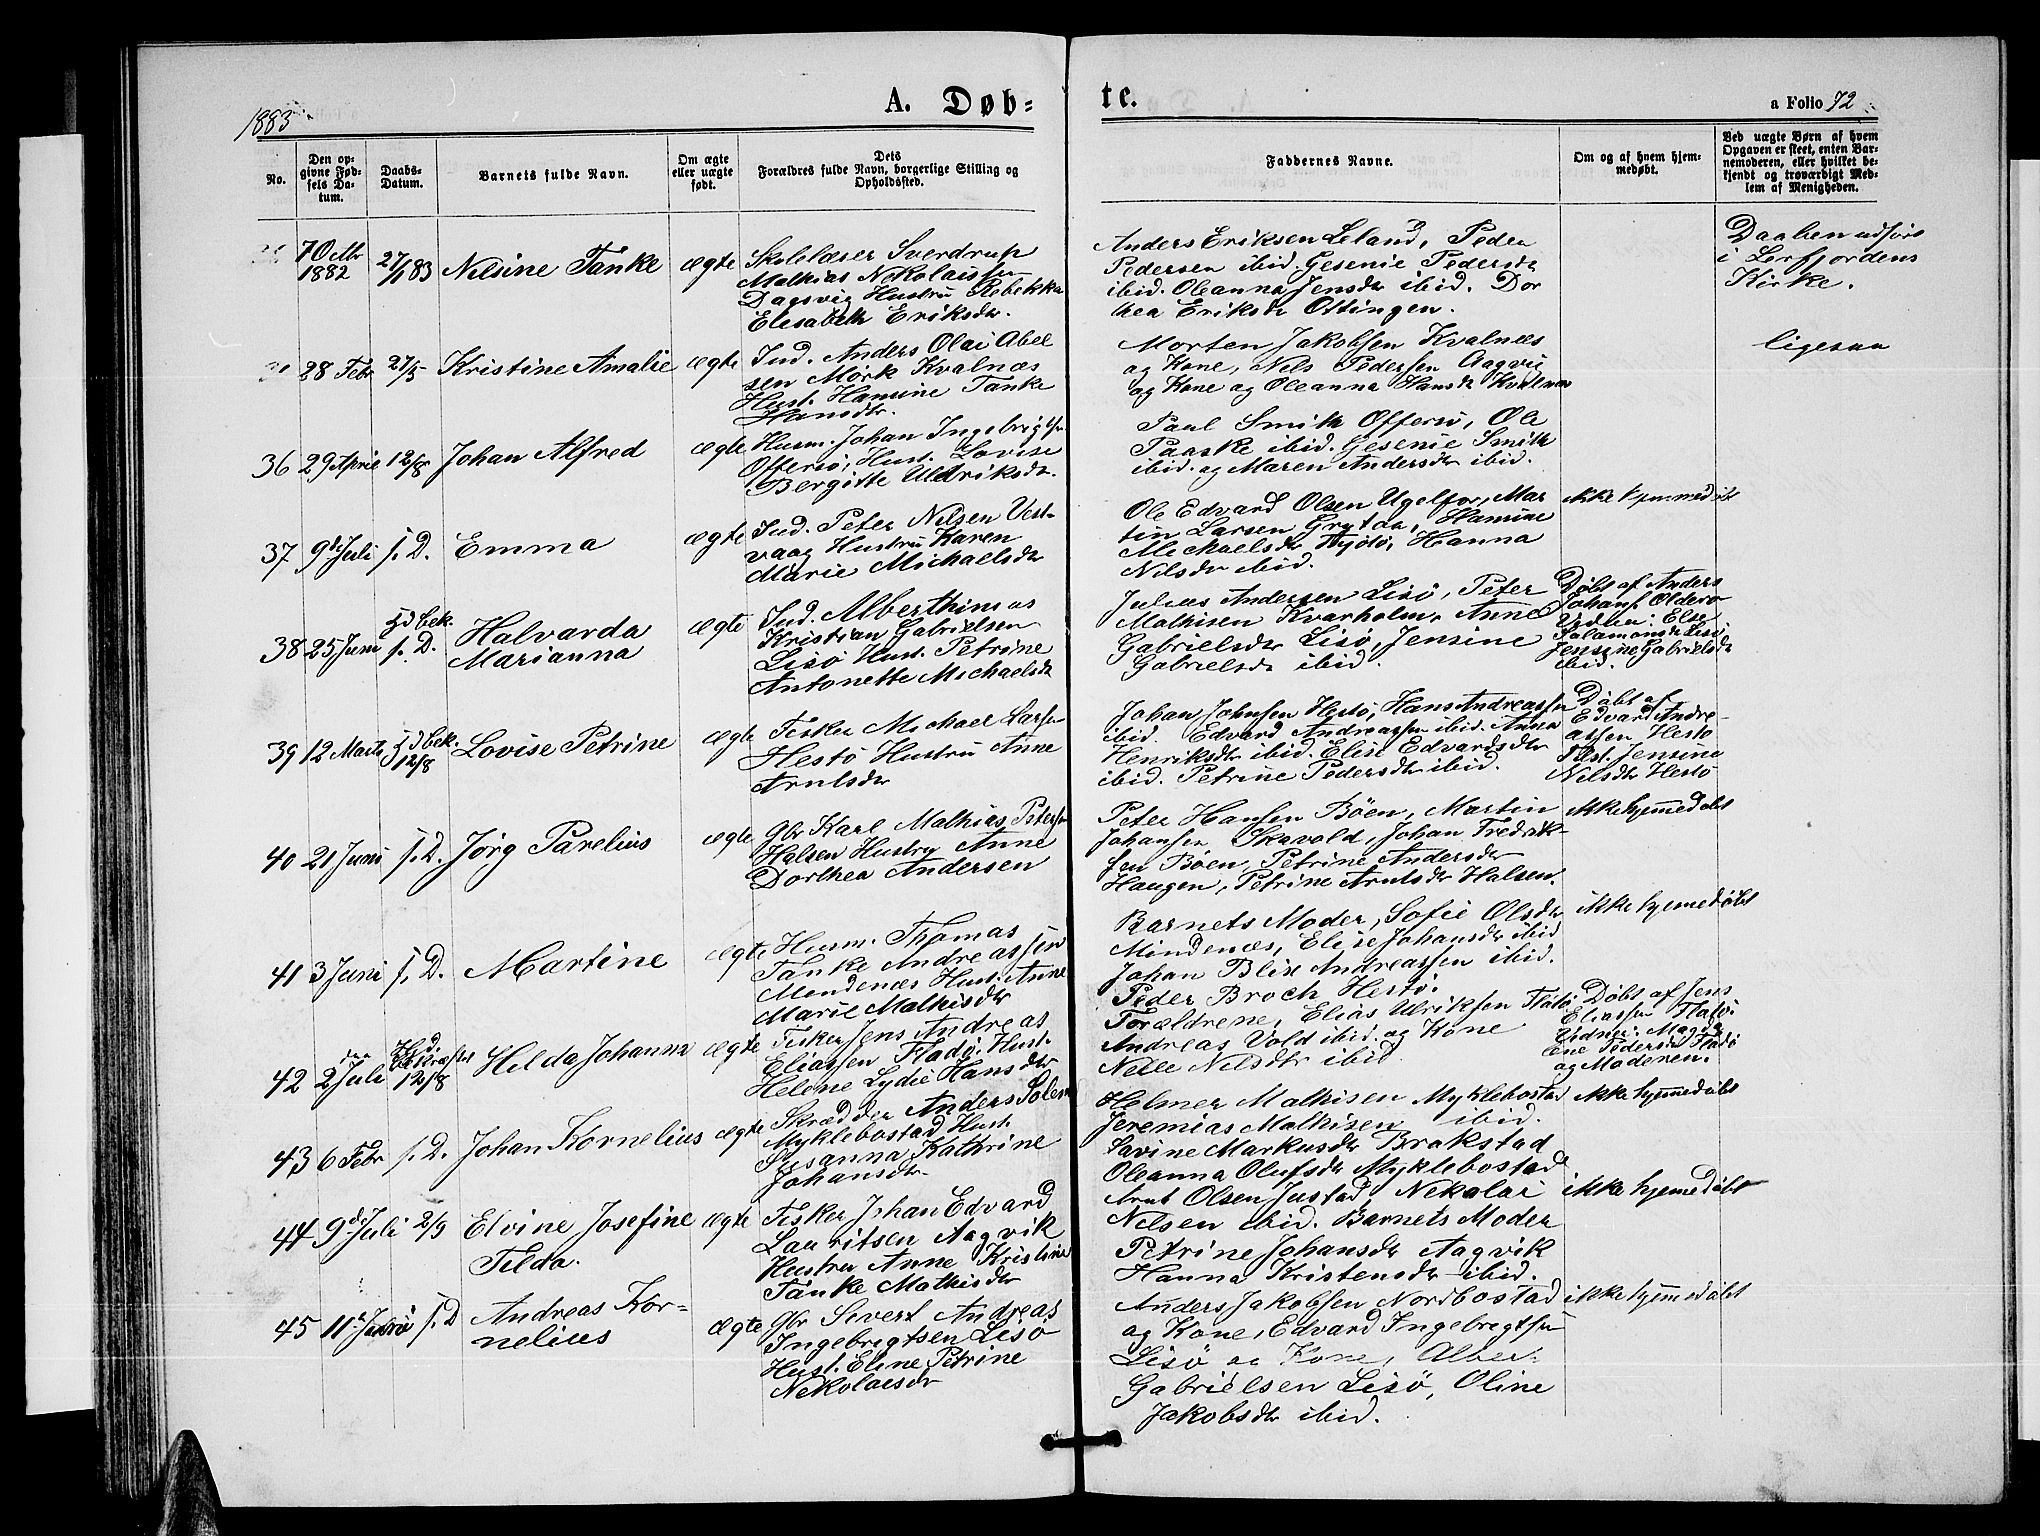 1883
A. Døb-
te.
a Folio 72
No.
Den opgivne Fødsels Datum.
Daabs-Datum.
Barnets fulde Navn.
Om ægte eller uægte født.
Dets Forældres fulde Navn, borgerlige Stilling og Opholdssted.
Faddernes Navne.
Om og af hvem hjemmedøbt.
Ved uægte Børn af hvem Opgaven er skeet, enten Barnemoderen, eller hvilket bekjendt og troværdigt Medlem af Menigheden.
7 Octbr 1882
27/1 83
Nilsine Tanke
ægte
Skolelærer Sverdrup
Mathias Nikolaissen
Dagsvig Hustru Rebekka
Elisabeth Eriksdr.
Anders Eriksen Leland, Peder
Pedersen ibid. Gesenie Pedersdr
ibid. Oleanna Jensdr ibid. Dor
thea Eriksdr Ottingen.
Daaben udført
i Lerfjordens
Kirke.
28 Febr
27/5
Kristine Amalie
ægte
Ind. Anders Olai Abel
sen Mørk Kvalnæs
Hust. Hamine Tanke
Hansdtr.
Morten Jakobsen Kvalnæs
og Kone, Nils Pedersen Aagvig
og Kone og Oleanna Hansdr Kvalnæs
ligesaa
36
29 April
12/8
Johan Alfred
ægte
Husm. Johan Ingebrigtsn
Offersø, Hust. Lovise
Bergitte Uldriksdr.
Paul Smith Offersø, Ole
Paaske ibid. Gesenie Smith
ibid. og Maren Andersdr ibid.
37
9d Juli
s. D.
Emma
ægte
Ind. Peter Nilsen Vest-
vaag Hustru Karen
Marie Michaelsdr
Ole Edvard Olsen Ugelfor, Mar
tin Larsen Grytaa, Hamine
Michaelsdr Tjøtø, Hanna
Nilsdr ibid.
ikke hjemmedøbt
38
25 Juni
Hd bek.
s. D.
Halvarda
Marianna
ægte
Ind. Alberthinius
Kristian Gabrielsen
Lisø Hust. Petrine
Antonette Michaelsdr
Julius Andersen Lisø, Peter
Mathisen Kvarholm, Anne
Gabrielsdr Lisø, Jensine
Gabrielsdr ibid.
Døbt af Anders
Johans. Oldervo
Vidner: Else
Salamonsdr Lisø
Jensine Gabrielsdr
ibid.
39
12 Marts
Hd bek.
12/8
Lovise Petrine
ægte
Fisker Michael Larsen
Hestø Hustru Anne
Arntsdr
Johan Johnsen Hestø, Hans Andreassen
ibid. Edvard Andreassen ibid. Anna
Henriksdr ibid. Elise Edvardsdr
ibid. Petrine Pedersdr ibid.
Døbt af
Edvard Andre-
assen Hestø
Test. Jensine
Nilsdr Hestø
40
21 Juni
s. D.
Jørg Parelius
ægte
Gbr Karl Mathias Petersn
Halsen Hustru Anne
Dorthea Andersen
Peter Hansen Bøen, Martin
Johansen Skavold, Johan Fredrik-
sen Bøen, Petrine Andersdr
Haugen, Petrine Arntsdr Halsen.
ikke hjemmedøbt
41
3 Juni
s. D.
Martine
ægte
Husm. Thomas
Tanke Andreassen
Mindenæs Hust. Anne
Marie Mathisdr
Barnets Moder, Sofie Olsdr
Mindenæs, Elise Johansdr ibid
Johan Blix Andreassen ibid.
Peder Broch Hestø.
ikke hjemmedøbt
42
2 Juli
12/8
Hilda Johanna
ægte
Fisker Jens Andreas
Eliassen Fladø, Hust.
Helene Lydie Hansdr
Forældrene, Elias Ulriksen Flatø
Andreas Vold ibid. og Kone
Nelle Nilsdtr ibid
Døbt af Jens
Eliassen Flatø.
Vidner: Magda
Ene Pedersdr Fladø
og Moderen.
43
6 Febr
s. D.
Johan Kornelius
ægte
Skrædder Anders Solem
Myklebostad Hust
Susanna Kathrine
Johansdr
Helmer Mathisen Myklebostad
Jeremias Mathisen ibid.
Savine Markusdr Brakstad
Oleanna Olufsdr Myklebostad
ikke hjemmedøbt
44
9d Juli
2/9
Elvine Josefine
Tilda.
ægte
Fisker Johan Edvard
Lauritsen Aagvik
Hustru Anne Kristine
Tanke Mathisdr
Arnt Olsen Justad, Nikolai
Nilsen ibid. Barnets Moder
Petrine Johansdr Aagvik
Hanna Kristensdr ibid.
ikke hjemmedøbt
45
s. D
Andreas Kor-
nelius
ægte
Gbr Sivert Andreas
Ingebregtsen Lisø
Hust. Eline Petrine
Nikolaisdr
Anders Jakobsen Nordbostad
og Kone, Edvard Ingebregtsen
Lisø og Kone, Alber-
Gabrielsen Lisø, Oline
Jakobsdr ibid.
ikke hjemmedøbt